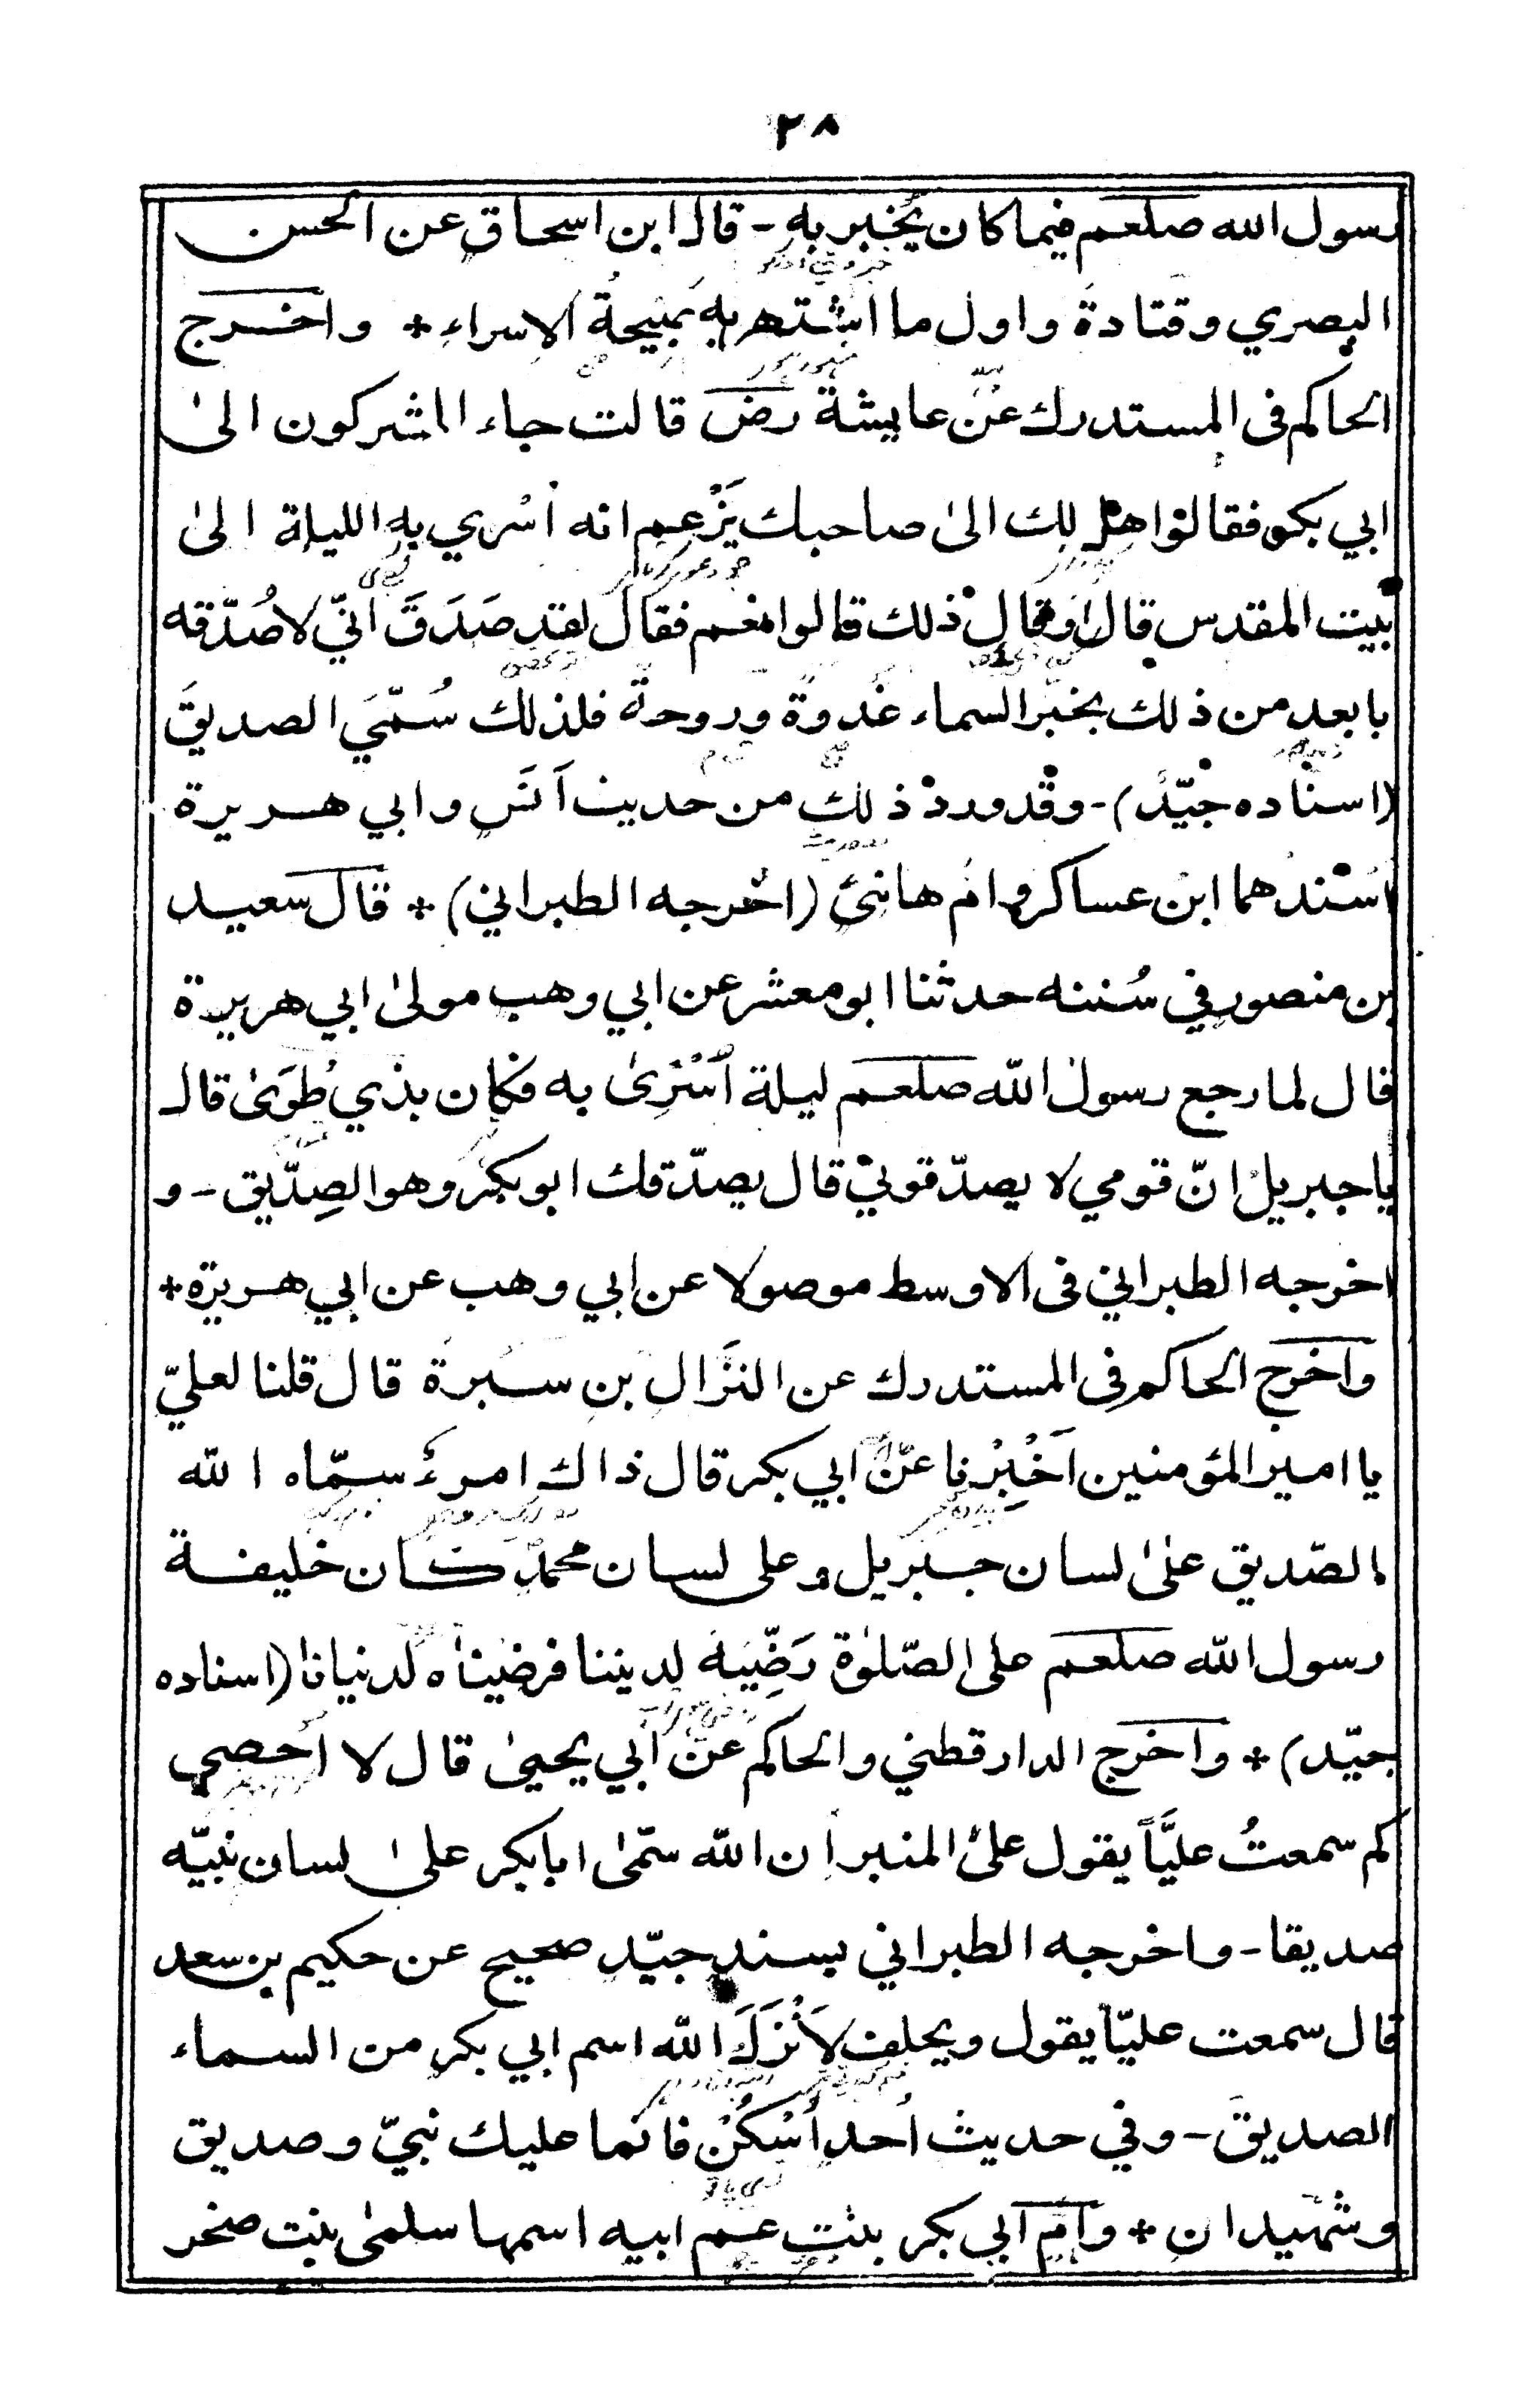 ٢٨
رسول الله صلعم فيما كان يُخبر به - قال ابن اسحاق عن الحسن
البصري وقتادة واول ما اشتهر به صَبِيحةَ الاسراء * واخرج
الحاكم فى المستدرك عن عايشة رض قالت جاء المشركون الىٰ
ابي بكر فقالوا هل لك الىٰ صاحبك يَزْعم انه اُسْري به الليلة الىٰ
بيت المقدس قال اَوَقال ذلك قالوا نعم فقال لقد صَدَقَ انّي لاُصَدّقه
بابعد من ذلك بخبر السماء غَدوة وروحة فلذلك سُمّيَ الصديقَ
(اسناده جيّد) - وقد ورد ذلك من حديث اَنَس وابي هريرة
اَسْندهما ابن عساكر وام هانئ (اخرجه الطبراني) * قال سعيد
بن منصور في سُننه حدثنا ابو معشر عن ابي وهب مولىٰ ابي هريرة
قال لما رجع رسول اللّه صلعم ليلة اُسْرِىٰ به فكان بذي طُوَىٰ قال
يا جبريل انّ قومي لا يصدّقوني قال يصدّقك ابوبكر وهو الصِدّيق - و
اخرجه الطبراني فى الاوسط موصولا عن ابي وهب عن ابي هريرة *
واخرج الحاكم فى المستدرك عن النَزّال بن سبرة قال قلنا لعليّ
يا امير المؤمنين اَخْبِرْنا عن ابي بكر قال ذاك امرءٌ سمّاه اللّه
الصّديق علىٰ لسان جبريل وعلى لسان محمد كان خليفة
رسول اللّه صلعم على الصّلوٰة رَضِيَه لديننا فرضيناه لدنيانا (اسناده
جيّد) * واخرج الدارقطني والحاكم عن ابي يحيىٰ قال لا اُحصي
كم سمعتُ عليًّا يقول علىٰ المنبر ان اللّه سمّىٰ ابا بكر علىٰ لسان نبيّه
صديقا - واخرجه الطبراني بسند جيّد صحيح عن حكيم بن سعد
قال سمعت عليّا يقول ويحلف لَاَنْزَلَ اللّه اسم ابي بكر من السماء
الصديقَ - وفي حديث اُحد اُسْكُنْ فانما عليك نبيّ وصديق
وشهيدان * واُم ابي بكر بنت عم ابيه اسمها سلمىٰ بنت صخر